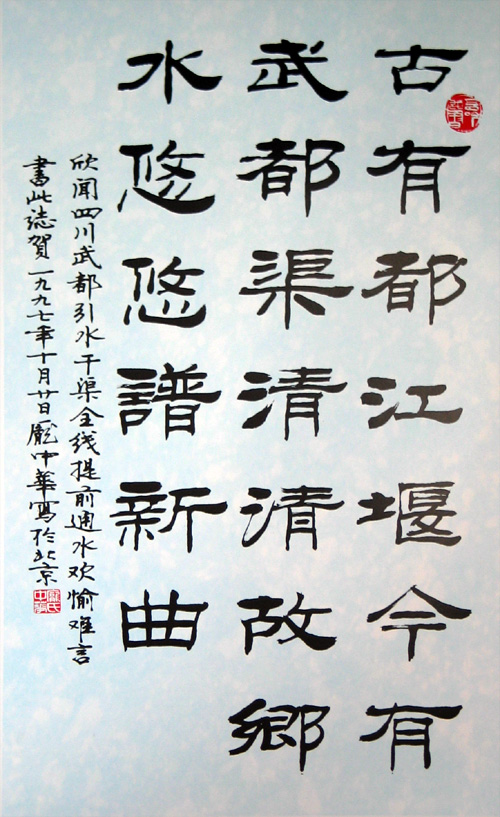 古有都江堰今有
武都渠清清故鄉
水悠悠譜新曲
欣闻四川武都引水干渠全线提前通水欢愉难言
書此誌賀一九九七年十月廿日龐中華寫於北京